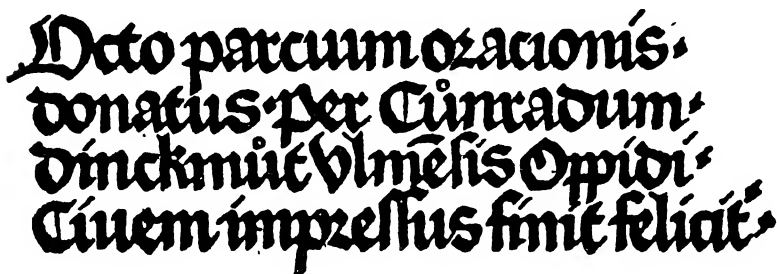 Octo parcuum oracionis·
donatus· Per Cůnradum·
dinckmůt Vlmēsis Oppidi·
Ciuem impressus finit felicit̛·